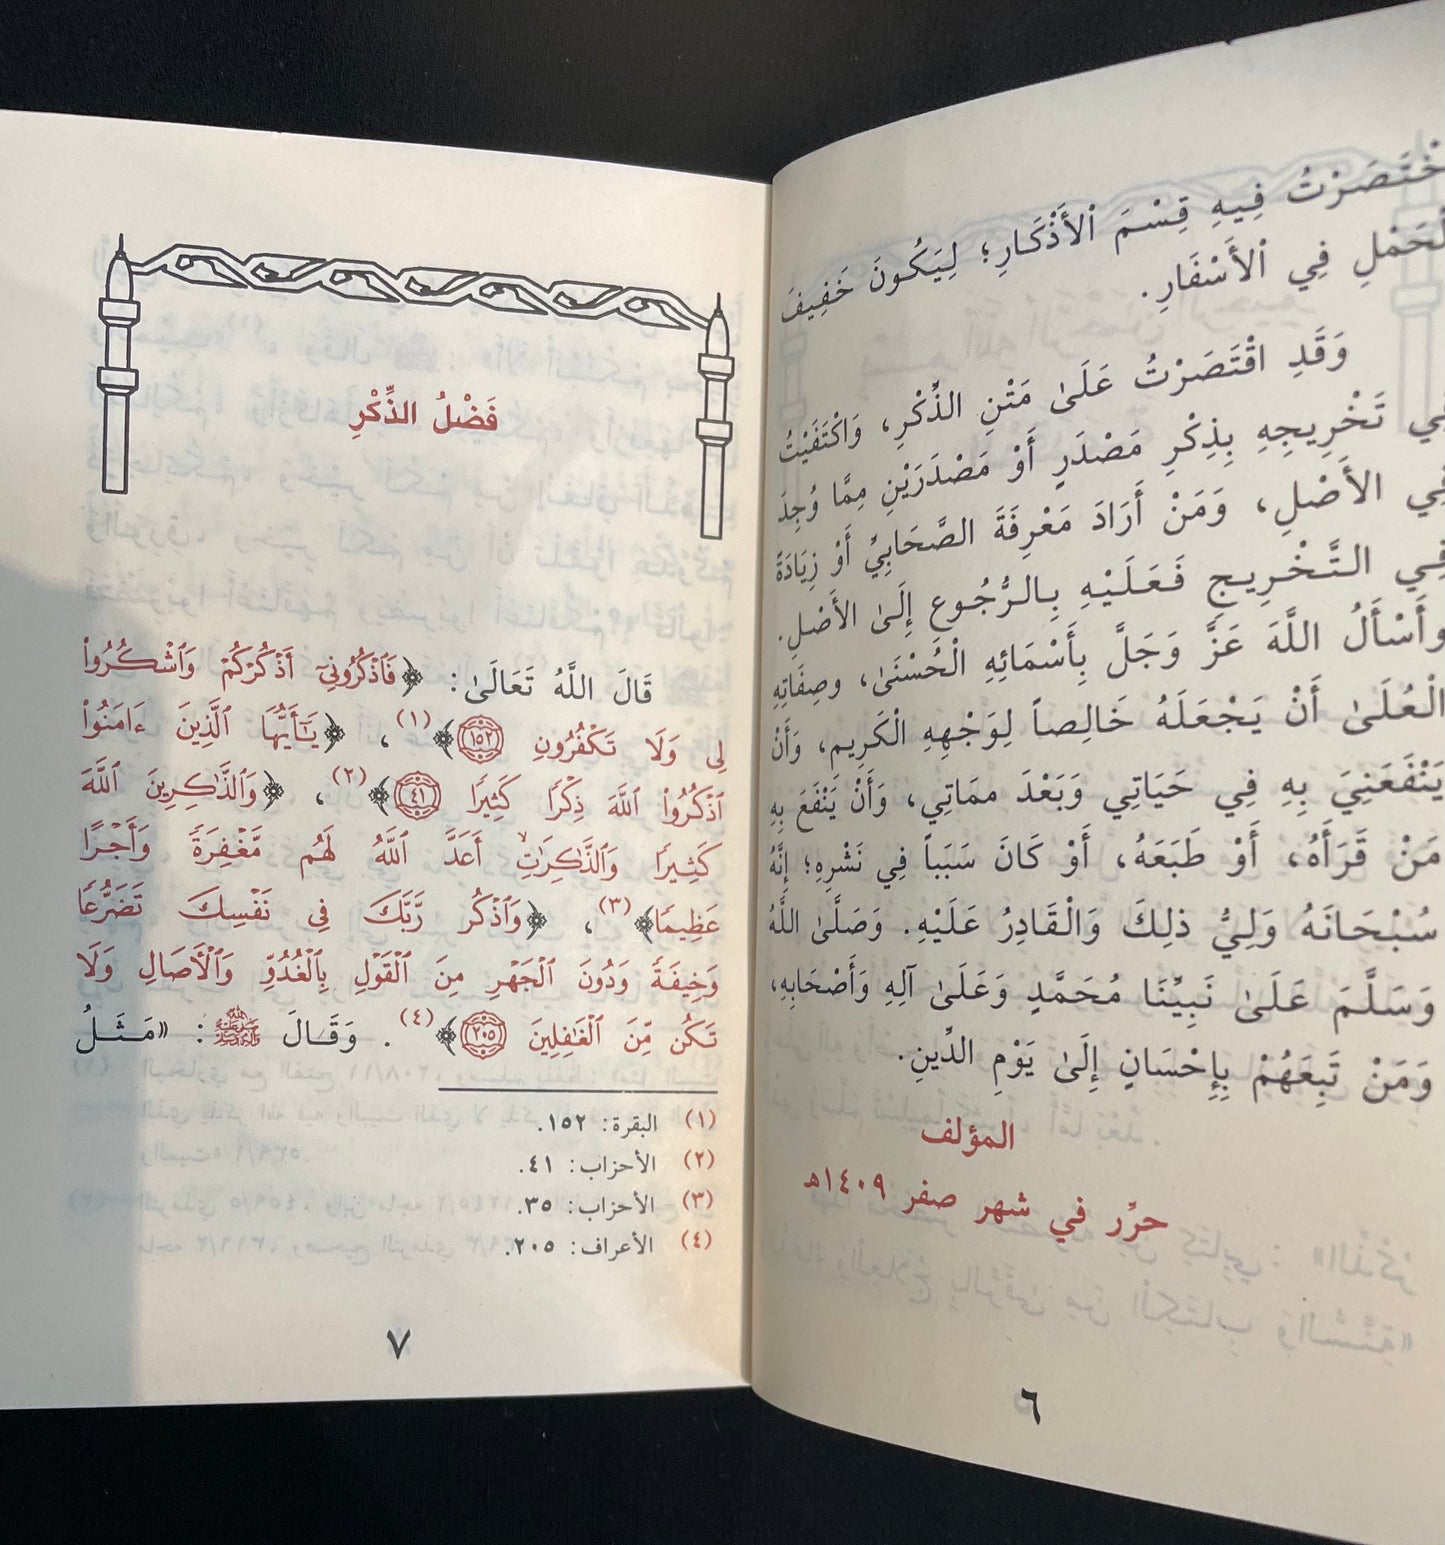 خْتَصَرْتُ فِيهِ قِسْمَ الْأَذْكَارِ؛ لِيَكُونَ خَفِيفَ
لْحَمْلِ فِي الْأَسْفَارِ.
وَقَدِ اقْتَصَرْتُ عَلَىٰ مَتْنِ الذِّكْرِ، وَاكْتَفَيْتُ
فِي تَخْرِيجِهِ بِذِكْرِ مَصْدَرٍ أَوْ مَصْدَرَيْنِ مِمَّا وُجِدَ
فِي الأَصْلِ، وَمَنْ أَرَادَ مَعْرِفَةَ الصَّحَابِيِّ أَوْ زِيَادَةً
فِي التَّخْرِيجِ فَعَلَيْهِ بِالرُّجُوعِ إِلَىٰ الأَصْلِ.
وَأَسْأَلُ اللَّهَ عَزَّ وَجَلَّ بِأَسْمَائِهِ الْحُسْنَىٰ، وصِفَاتِهِ
الْعُلَىٰ أَنْ يَجْعَلَهُ خَالِصاً لِوَجْهِهِ الْكَرِيمِ، وَأَنْ
يَنْفَعَنِيَ بِهِ فِي حَيَاتِي وَبَعْدَ ممَاتِي، وَأَنْ يَنْفَعَ بِهِ
مَنْ قَرَأَهُ، أَوْ طَبَعَهُ، أَوْ كَانَ سَبَباً فِي نَشْرِهِ؛ إِنَّهُ
سُبْحَانَهُ وَلِيُّ ذلِكَ وَالْقَادِرُ عَلَيْهِ. وَصَلَّىٰ اللَّهُ
وَسَلَّمَ عَلَىٰ نَبِيِّنَا مُحَمَّدٍ وَعَلَىٰ آلِهِ وَأَصْحَابِهِ،
وَمَنْ تَبِعَهُمْ بِإِحْسَانٍ إِلَىٰ يَوْمِ الدِّينِ.
المؤلف
حرِّر في شهر صفر ١٤٠٩هـ
٦
فَضْلُ الذِّكْرِ
قَالَ اللَّهُ تَعَالَىٰ: ﴿فَٱذْكُرُونِيٓ أَذْكُرْكُمْ وَٱشْكُرُواْ
لِي وَلَا تَكْفُرُونِ ١٥٢﴾(١)، ﴿يَٰٓأَيُّهَا ٱلَّذِينَ ءَامَنُواْ
ٱذْكُرُواْ ٱللَّهَ ذِكْرًا كَثِيرًا ٤١﴾(٢)، ﴿وَٱلذَّٰكِرِينَ ٱللَّهَ
كَثِيرًا وَٱلذَّٰكِرَٰتِ أَعَدَّ ٱللَّهُ لَهُم مَّغْفِرَةً وَأَجْرًا
عَظِيمًا﴾(٣)، ﴿وَٱذْكُر رَّبَّكَ فِي نَفْسِكَ تَضَرُّعًا
وَخِيفَةً وَدُونَ ٱلْجَهْرِ مِنَ ٱلْقَوْلِ بِٱلْغُدُوِّ وَٱلْأَصَالِ وَلَا
تَكُن مِّنَ ٱلْغَٰفِلِينَ ٢٠٥﴾(٤). وَقَالَ ﷺ: «مَثَلُ
(١) البقرة: ١٥٢.
(٢) الأحزاب: ٤١.
(٣) الأحزاب: ٣٥.
(٤) الأعراف: ٢٠٥.
٧